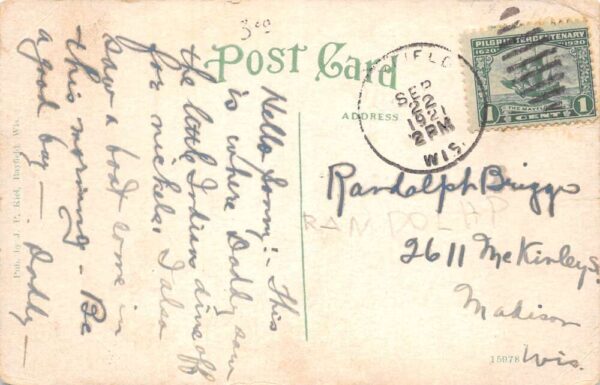 300
Post Card
ADDRESS
FIELD
SEP
2
1921
2 PM
WIS.
PILGRIM TERCENTENARY
1620 1920
THE MAYFLOWER
1 CENT 1
Hello Sonny:- This
is where Daddy saw
the little Indian dive off
for nickels. I also
saw a boat come in
this morning - Be
a good boy - Daddy -
Randolph Briggs
RANDOLHP
2611 McKinley St
Madison
Wis.
15978
Pub. by J. P. Kiel, Bayfield, Wis.